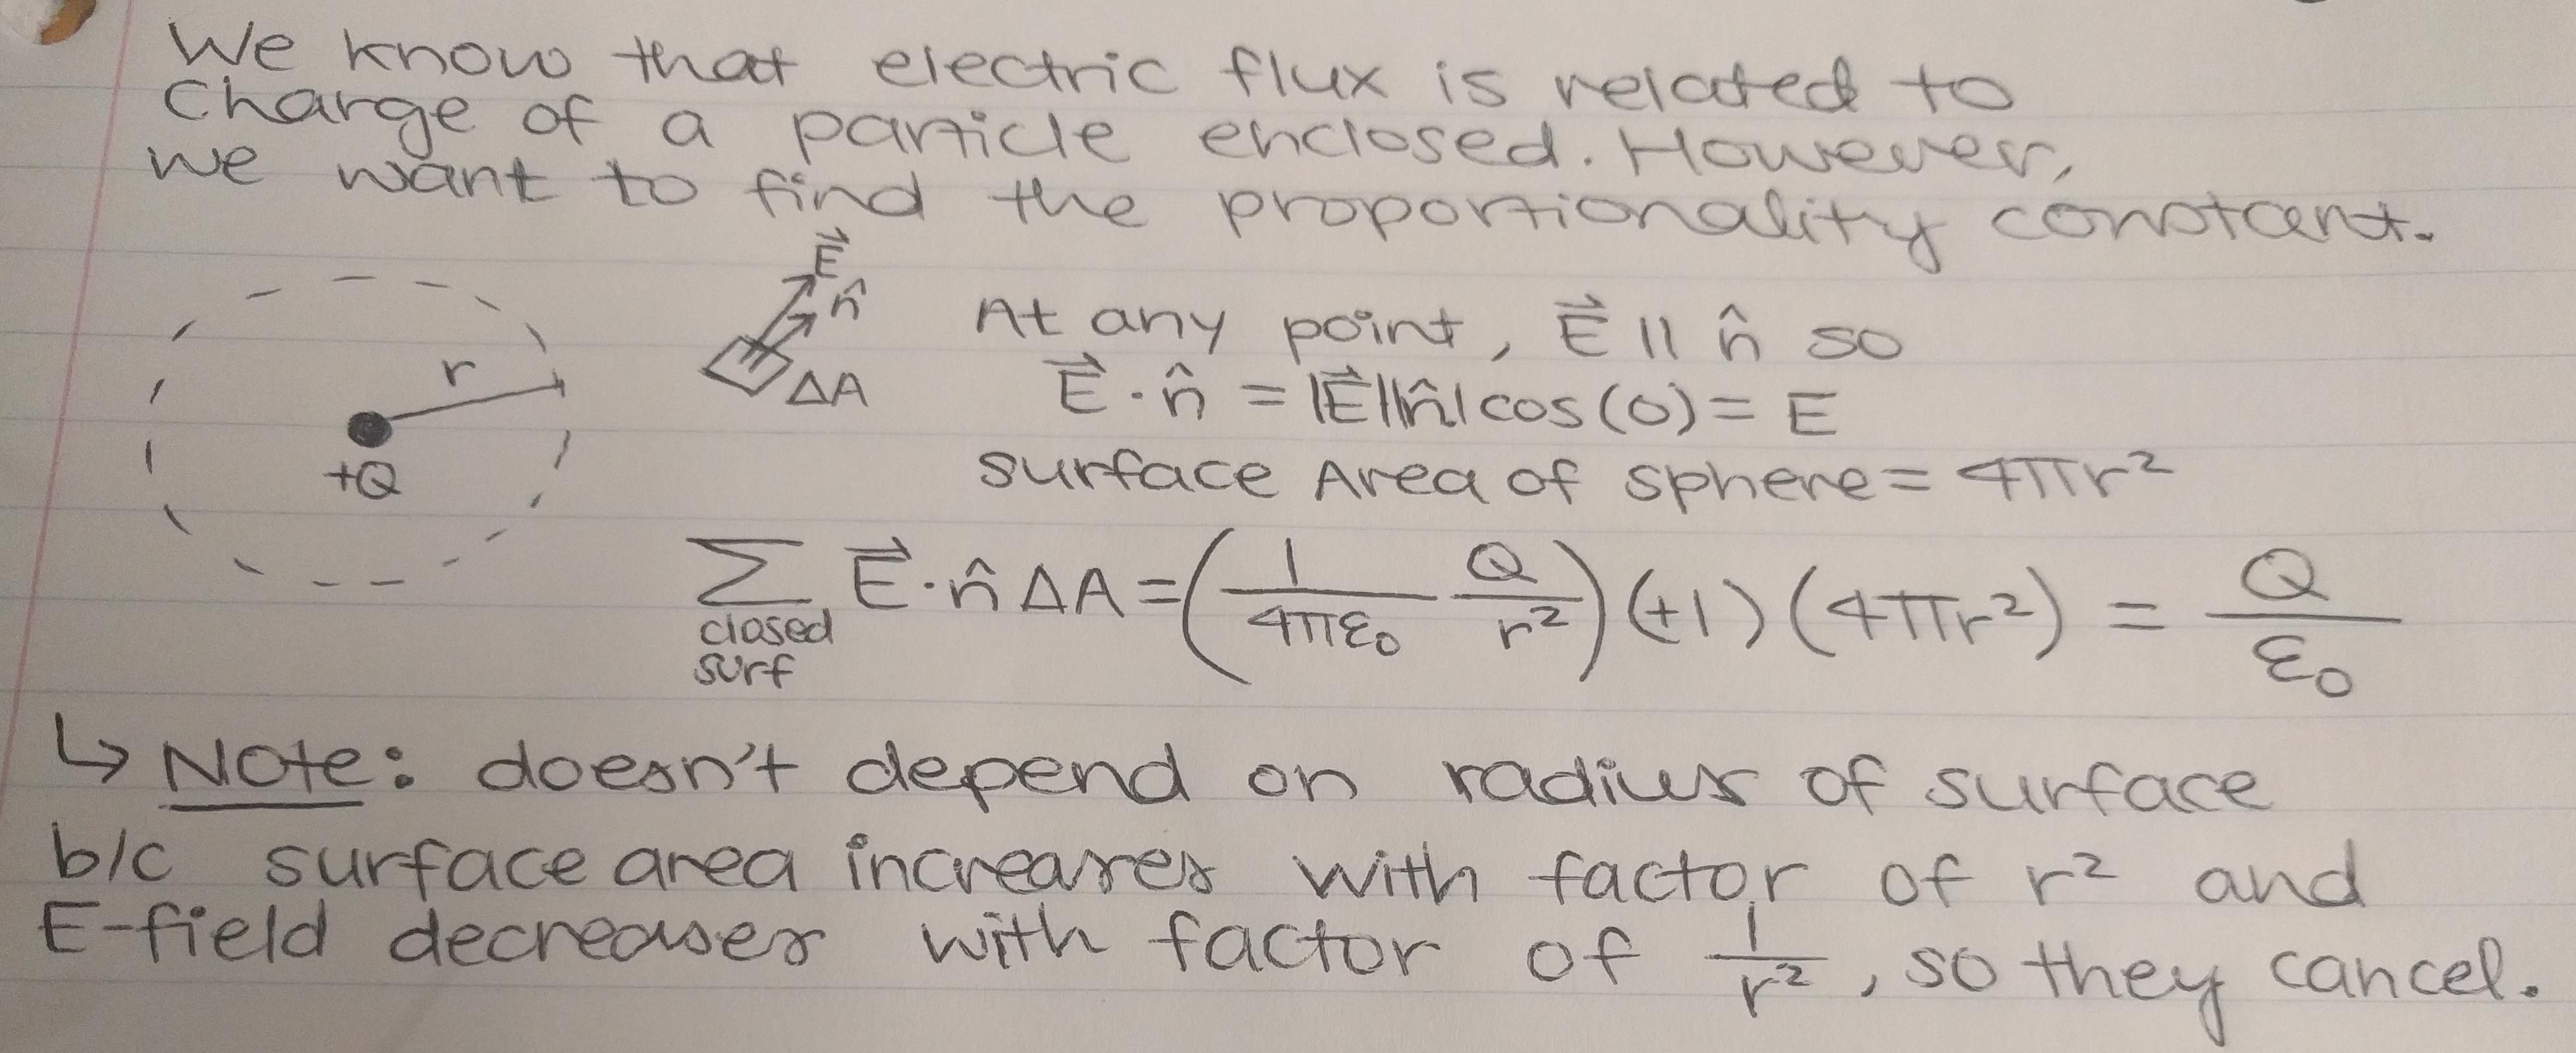 We know that electric flux is related to
Charge of a particle enclosed. However,
we want to find the proportionality constant.
E⃗
n̂
ΔA
r
+Q
At any point, E⃗ || n̂ so
E⃗ · n̂ = |E⃗||n̂|cos(0) = E
surface Area of sphere = 4πr²
∑ E⃗·n̂ ΔA = (1/4πε₀ Q/r²)(+1)(4πr²) = Q/ε₀
closed
surf
↳ Note: doesn't depend on radius of surface
b/c surface area increases with factor of r² and
E-field decreases with factor of 1/r², so they cancel.